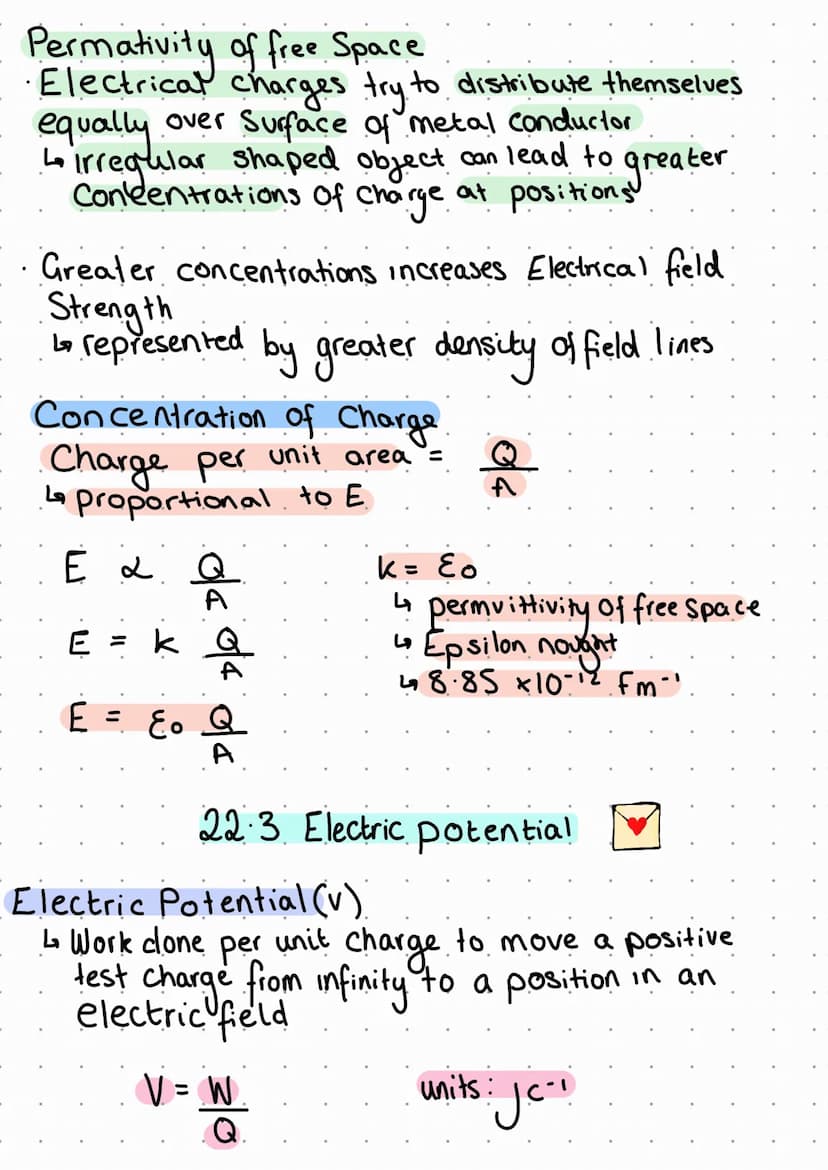 Permativity of free Space
· Electrical charges try to distribute themselves
equally over Surface of metal conductor
↳ irregular shaped object can lead to greater
Concentrations of Charge at positions
· Greater concentrations increases Electrical field
Strength
↳ represented by greater density of field lines
Concentration of Charge
Charge per unit area = Q/A
↳ proportional to E
E ∝ Q/A
E = k Q/A
E = ε₀ Q/A
k = ε₀
↳ permvittivity of free space
↳ Epsilon nought
↳ 8.85 ×10⁻¹² Fm⁻¹
22.3 Electric potential
Electric Potential (V)
↳ Work done per unit charge to move a positive
test charge from infinity to a position in an
electric field
V = W/Q
units: JC⁻¹